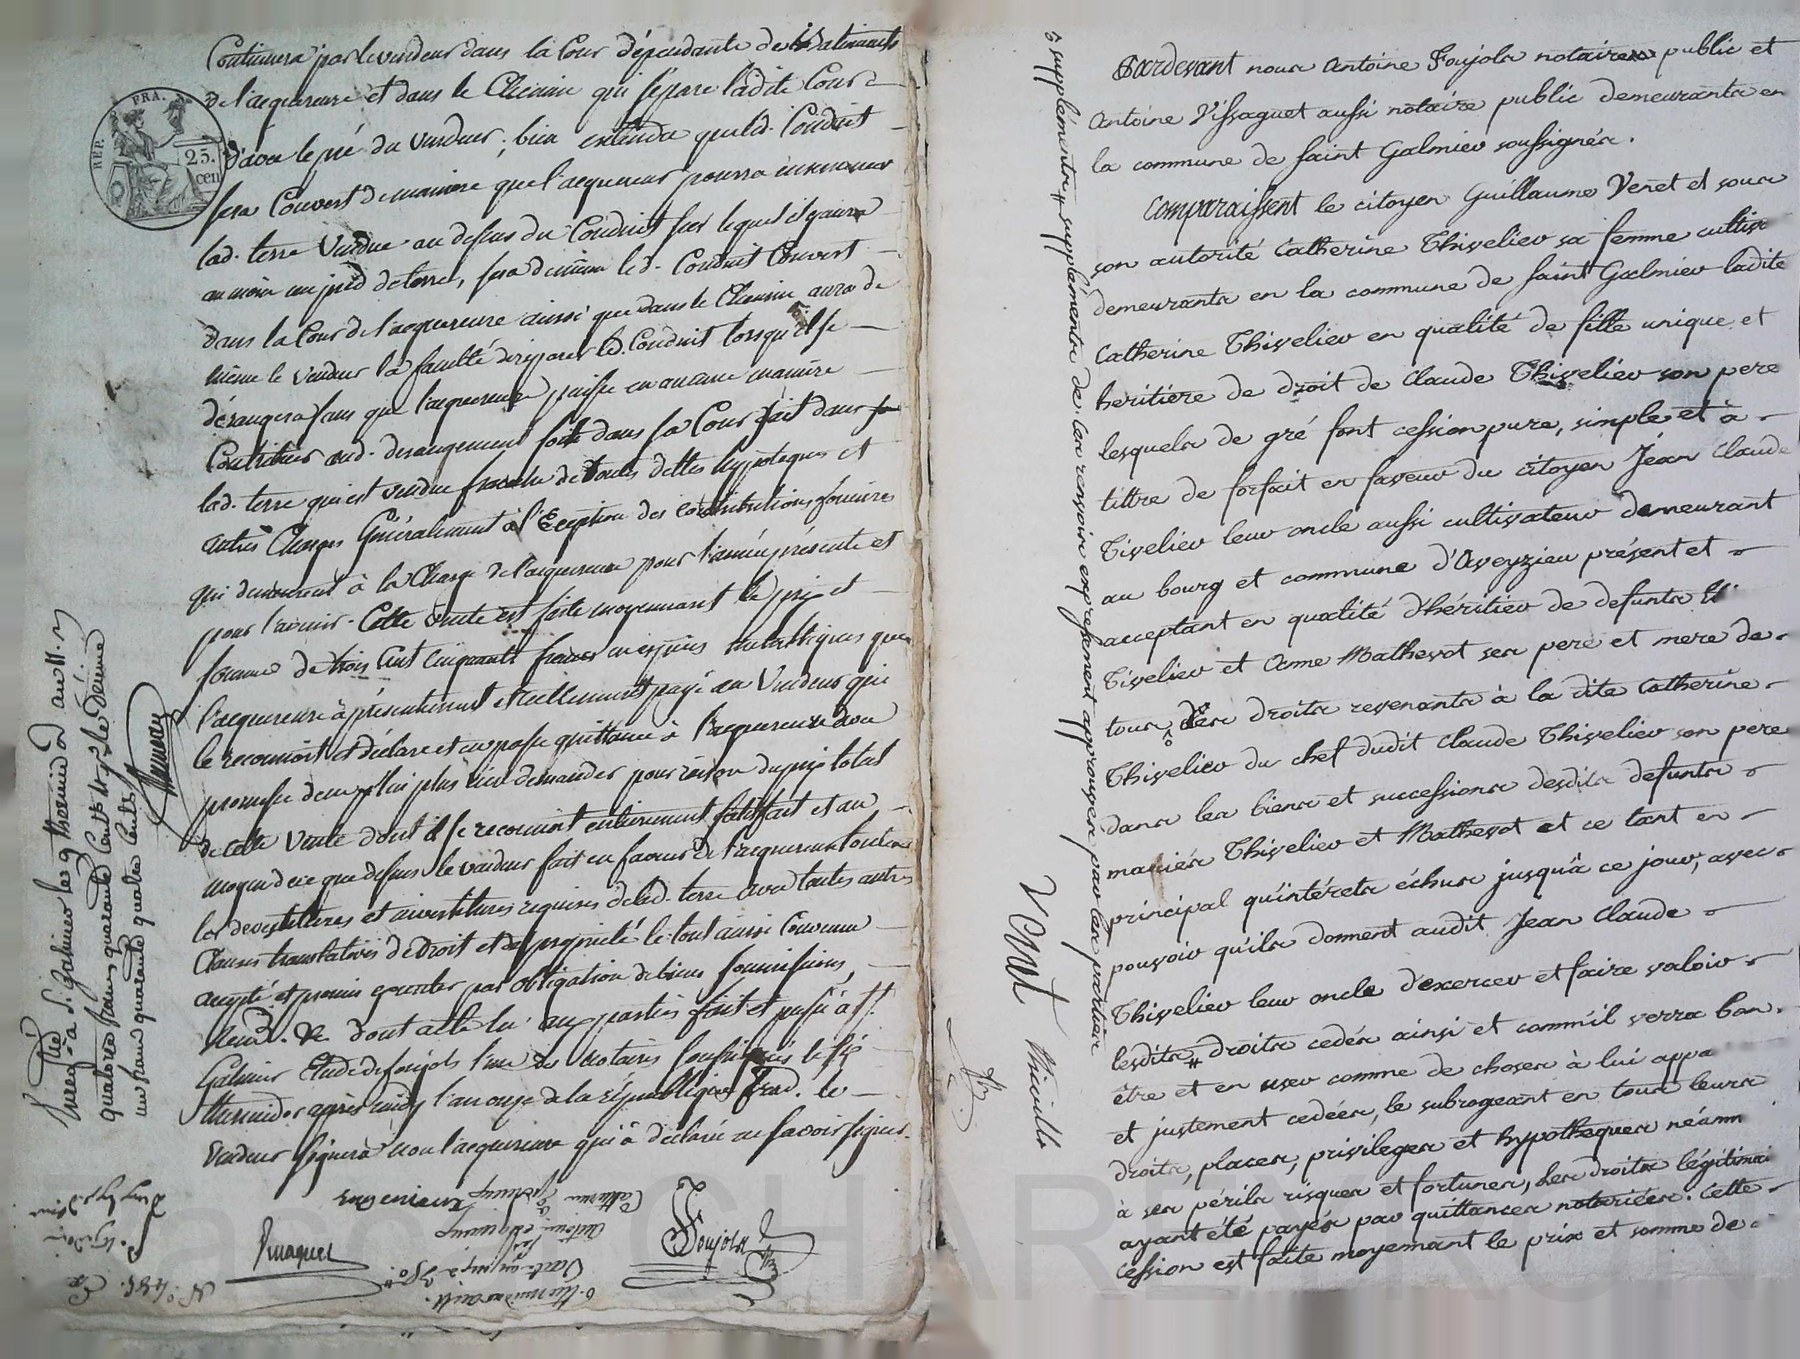 Continuera par le vendeur dans la Cour dépendante des Batiments
de l'acquereure et dans le Chemin qui sépare ladite Cour
d'avec le pré du vendeur; bien entendu que led. Conduit
sera Couvert de maniere que l'acquereur pourra ensemencer
lad. terre vendue au dessus du Conduit sur lequel il y aura
au moins un pied de terre, sera de même led. Conduit Couvert
dans la Cour de l'acquereure ainsi que dans le Chemin aura de
même le vendeur la faculté de réparer led. Conduit lorsqu'il se
dérangera sans que l'acquereure puisse en aucune maniere
Contribuer aud. derangement soit dans sa Cour soit dans
lad. terre qui est vendue franche de toutes dettes hypoteques et
autres Charges Généralement à l'Exception des contributions foncieres
qui demeurent à la Charge de l'acquereure pour l'année présente et
pour l'avenir. Cette vente est faite moyennant le prix et
somme de trois Cent Cinquante francs en espèces metalliques que
l'acquereure à présentement et réellement payé au Vendeur qui
le reconnoit et déclare et en passe quittance à l'acquereure avec
promesse de ne plus rien demander pour raison du prix total
de cette vente dont il se reconnoit entierement satisfait et au
moyen de ce que dessus le vendeur fait en faveur de l'acquereure toutes
les devestitures et investitures requises de lad. terre avec toutes autres
Clauses translatives de Droit et de propriété le tout ainsi Convenu
accepté et promis executer par obligation de biens soumissions,
renon. &c. dont acte lu aux parties fait et passé à St.
Galmier Etude de foujols l'un des notaires soussignés le six
thermidor après midy l'an onze de la République Frad. le
Vendeur signera non l'acquereure qui à déclaré ne savoir signer.
REP. FRA.
25.
cen
Enreg. à St. Galmier le 9 thermidor an 11.
quatorze francs quarante
un franc quarante quatre Cents
Vissaguet
Foujols
Pardevant nous Antoine Foujols notaire public et
Antoine Vissaguet aussi notaire public demeurants en
la commune de Saint Galmier soussignés.
Comparaissent le citoyen Guillaume Venet et sous
son autorité Catherine Thivelier sa femme cultiv
demeurants en la commune de Saint Galmier ladite
Catherine Thivelier en qualité de fille unique et
heritiere de droit de Claude Thivelier son pere
lesquels de gré font cession pure, simple et à
tiltre de forfait en faveur du citoyen Jean Claude
Tivelier leur oncle aussi cultivateur demeurant
au bourg et commune d'Aveyzieu présent et
acceptant en qualité d'héritier de defunts
Tivelier et Anne Mathevot ses pere et mere de
tous les droits revenants à la dite Catherine
Thivelier du chef dudit Claude Thivelier son pere
dans les biens et successions desdits defunts
mariés Thivelier et Mathevot et ce tant en
principal qu'intérets échus jusqu'à ce jour, avec
pouvoir qu'ils donnent audit Jean Claude
Thivelier leur oncle d'exercer et faire valoir
lesdits # droits cedés ainsi et comm'il verra bon
être et en user comme de choses à lui appa
et justement cedées, le subrogeant en tous leurs
droits, places, privileges et hypotheques néanm
à ses périls risques et fortunes, les droits légitimai
ayant été payés par quittances notariées. Cette
cession est faite moyennant le prix et somme de
supplément de: Con ressoire expressement approuvés par les parties
Venet